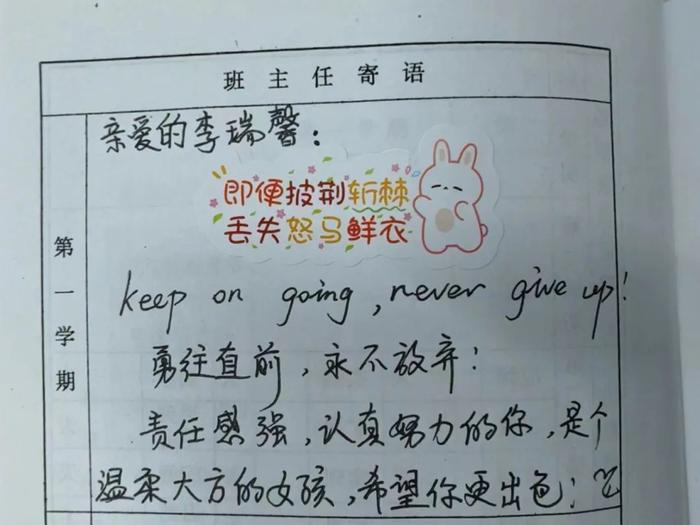 班主任寄语
第一学期
亲爱的李瑞馨：
即便披荆斩棘
丢失怒马鲜衣
keep on going, never give up!
勇往直前，永不放弃！
责任感强，认真努力的你，是个
温柔大方的女孩，希望你更出色！